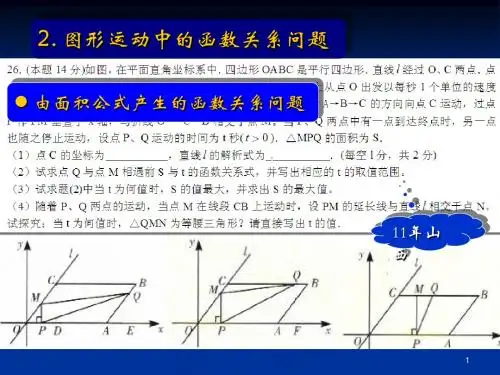 2. 图形运动中的函数关系问题
26. (本题 14 分)如图,在平面直角坐标系中. 四边形 OABC 是平行四边形. 直线 l 经过 O、C 两点. 点
● 由面积公式产生的函数关系问题
从点 O 出发以每秒 1 个单位的速度
A→B→C 的方向向点 C 运动,过点
Q 两点中有一点到达终点时,另一点
也随之停止运动,设点 P、Q 运动的时间为 t 秒(t>0). △MPQ 的面积为 S.
(1)点 C 的坐标为 ,直线 l 的解析式为 . (每空 l 分,共 2 分)
(2)试求点 Q 与点 M 相遇前 S 与 t 的函数关系式,并写出相应的 t 的取值范围.
(3)试求题(2)中当 t 为何值时,S 的值最大,并求出 S 的最大值.
(4)随着 P、Q 两点的运动,当点 M 在线段 CB 上运动时,设 PM 的延长线与直线 l 相交于点 N.
试探究:当 t 为何值时,△QMN 为等腰三角形?请直接写出 t 的值.
11年山
西
y l C B M Q O P D A E x
y l C Q B M O P A F x
y l C M Q B O P A x
1